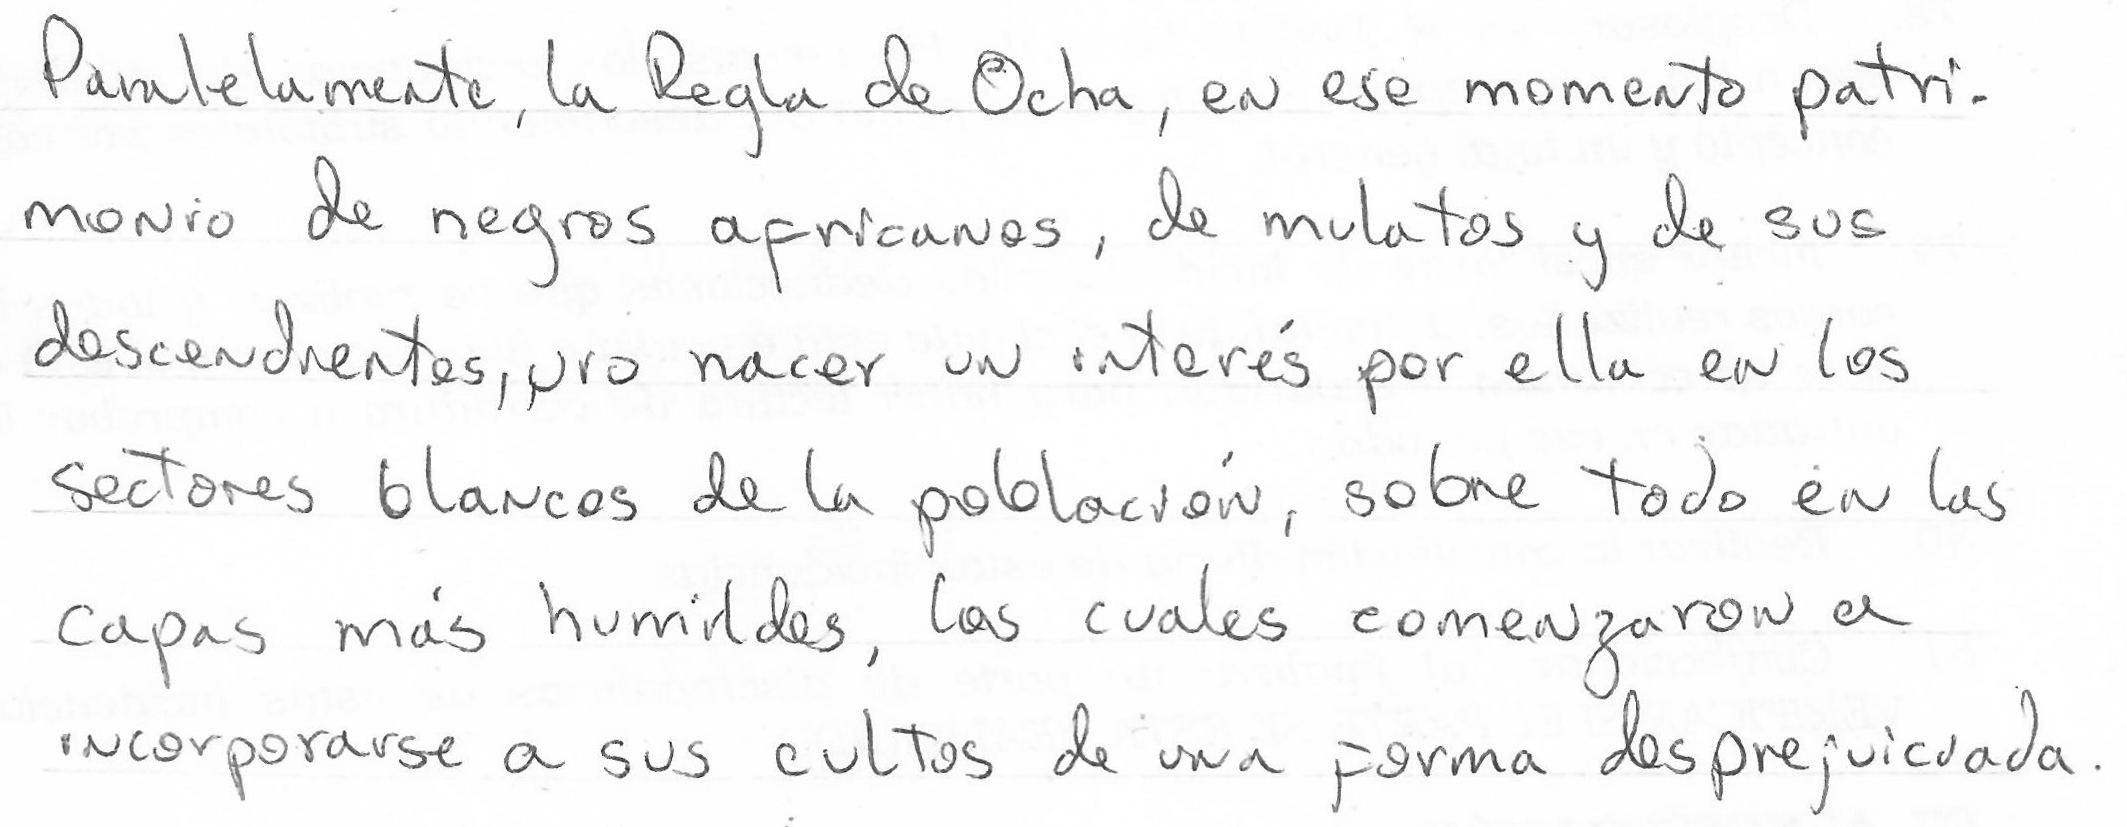 Paralelamente, la Regla de Ocha, en ese momento patri-
monio de negros africanos, de mulatos y de sus
descendientes, vio nacer un interés por ella en los
sectores blancos de la población, sobre todo en las
capas más humildes, las cuales comenzaron a
incorporarse a sus cultos de una forma desprejuiciada.